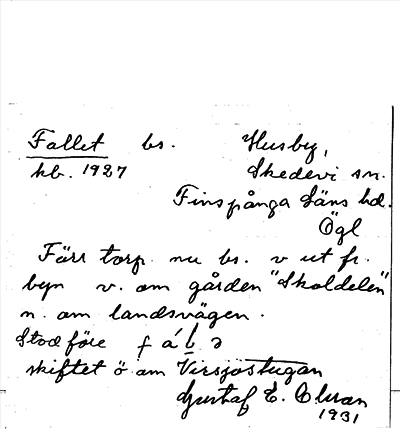 Fallet bs. Husby,
kb. 1927 Skedevi sn.
Finspånga Läns hd.
Ögl
Förr torp. nu bs. v ut fr.
byn v. om gården "Skoldelen"
n. om landsvägen.
Stod före
skiftet ö. om Virsjöstugan
Gustaf E. Olsson
1931